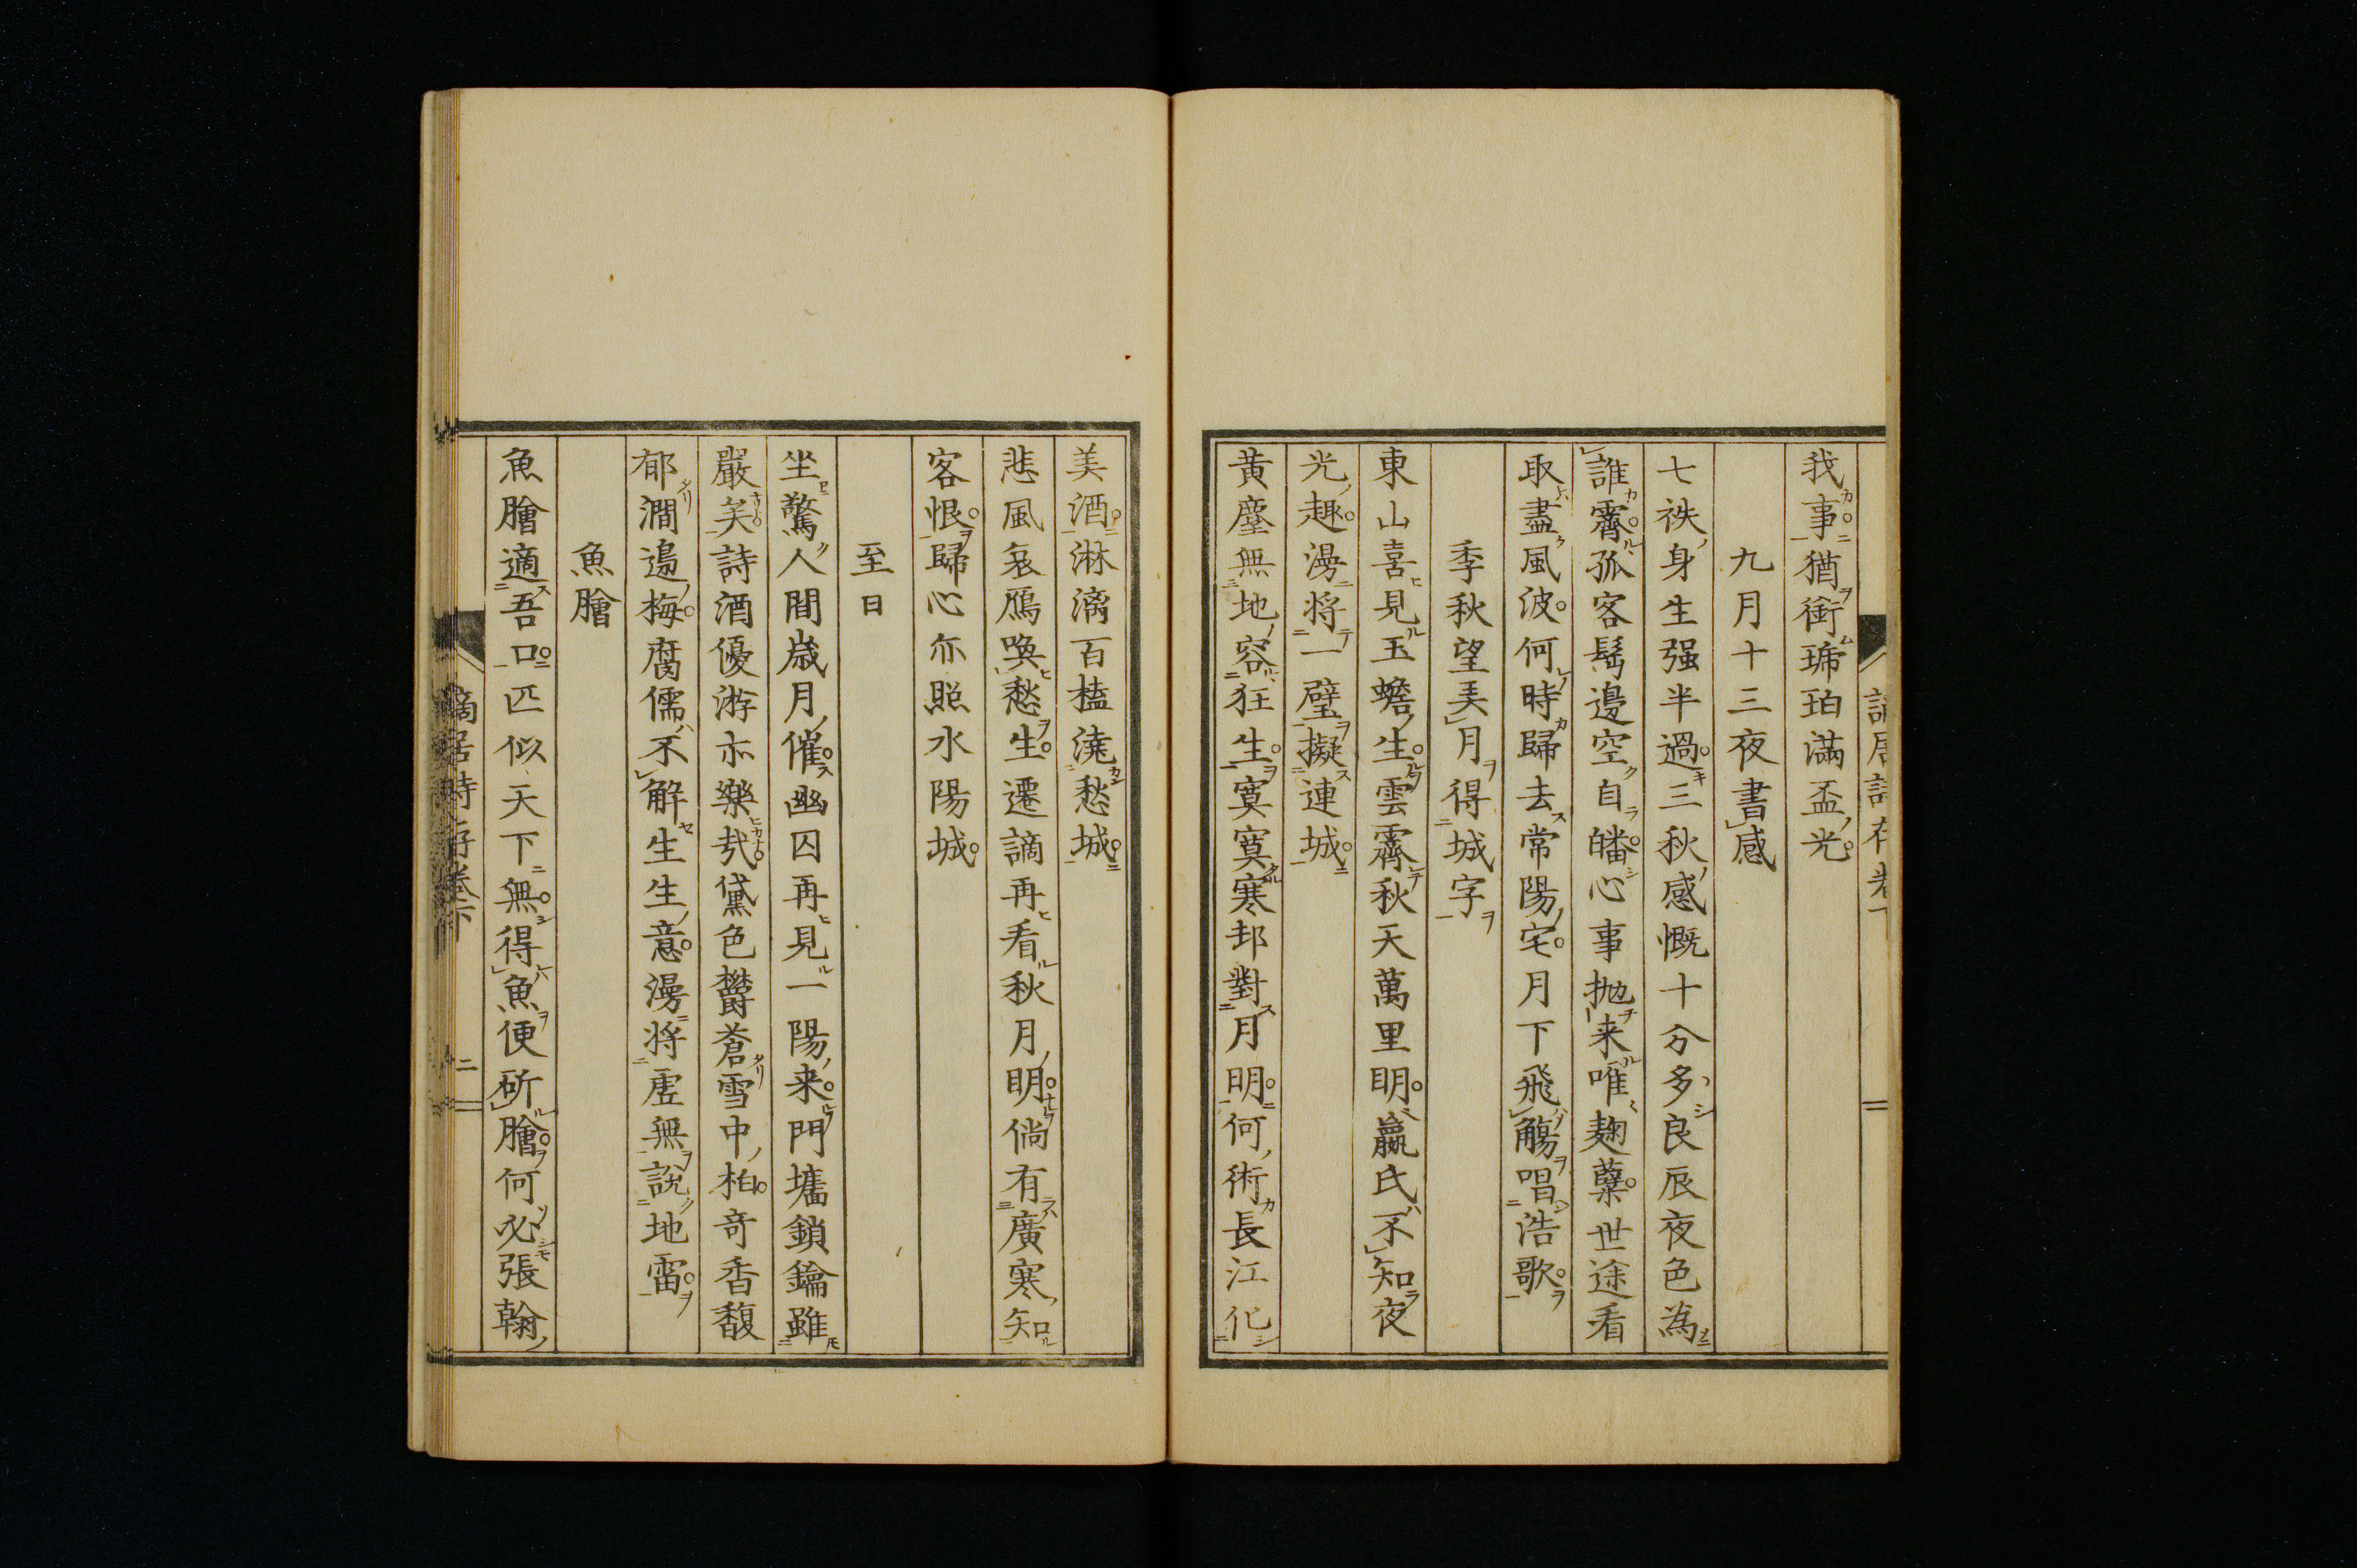 我事猶銜琋珀滿盃光
九月十三夜書感
七袟身生强半過三秋感慨十分多良辰夜色為
誰霽孤客髩邊空自皤心事抛来唯麹糵世途看
取盡風波何時歸去常陽宅月下飛觴唱浩歌
季秋望美月得城字
東山喜見玉蟾生雲霽秋天萬里明嬴氏不知夜
光趣漫将一璧擬連城
黄塵無地容狂生寞寞寒邨對月明何術長江化
美酒淋漓百榼澆愁城
悲風哀鴈喚愁生遷謫再看秋月明倘有廣寒知
客恨歸心亦照水陽城
至日
坐驚人間歳月催幽囚再見一陽来門墻鎖鑰雖
嚴矣詩酒優游亦樂哉黛色欝蒼雪中柏竒香馥
郁澗邉梅腐儒不解生生意漫将虗無說地雷
魚膾
魚膾適吾口匹似天下無得魚便斫膾何必張翰
謫居詩存巻下
二